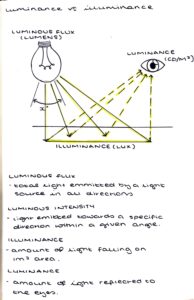 luminance vs illuminance
LUMINOUS FLUX
(LUMENS)
LUMINANCE
(CD/M²)
ILLUMINANCE (LUX)
LUMINOUS FLUX
• total light emmitted by a light
source in all directions.
LUMINOUS INTENSITY
• light emitted towards a specific
direction within a given angle.
ILLUMINANCE
• amount of light falling on
1m² area.
LUMINANCE
• amount of light reflected to
the eyes.